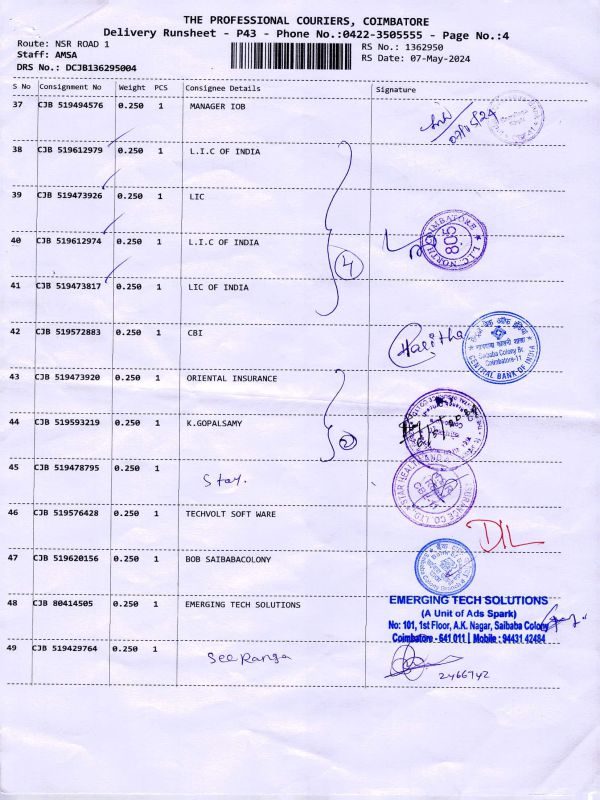 THE PROFESSIONAL COURIERS, COIMBATORE
Delivery Runsheet - P43 - Phone No.:0422-3505555 - Page No.:4
Route: NSR ROAD 1
RS No.: 1362950
Staff: AMSA
RS Date: 07-May-2024
DRS No.: DCJB136295004
S No Consignment No Weight PCS Consignee Details Signature
37 CJB 519494576 0.250 1 MANAGER IOB
07/05/24
38 CJB 519612979 0.250 1 L.I.C OF INDIA
39 CJB 519473926 0.250 1 LIC
L.I.C. NORTH COIMBATORE
805
40 CJB 519612974 0.250 1 L.I.C OF INDIA
4
41 CJB 519473817 0.250 1 LIC OF INDIA
42 CJB 519572883 0.250 1 CBI
Haritha
Saibaba Colony Br.
Coimbatore-11
CENTRAL BANK OF INDIA
43 CJB 519473920 0.250 1 ORIENTAL INSURANCE
44 CJB 519593219 0.250 1 K.GOPALSAMY
2
45 CJB 519478795 0.250 1
Star.
46 CJB 519576428 0.250 1 TECHVOLT SOFT WARE
47 CJB 519620156 0.250 1 BOB SAIBABACOLONY
48 CJB 80414505 0.250 1 EMERGING TECH SOLUTIONS
EMERGING TECH SOLUTIONS
(A Unit of Ads Spark)
No: 101, 1st Floor, A.K. Nagar, Saibaba Colony
Coimbatore - 641 011 | Mobile : 94431 42484
49 CJB 519429764 0.250 1
See Ranga
2466742